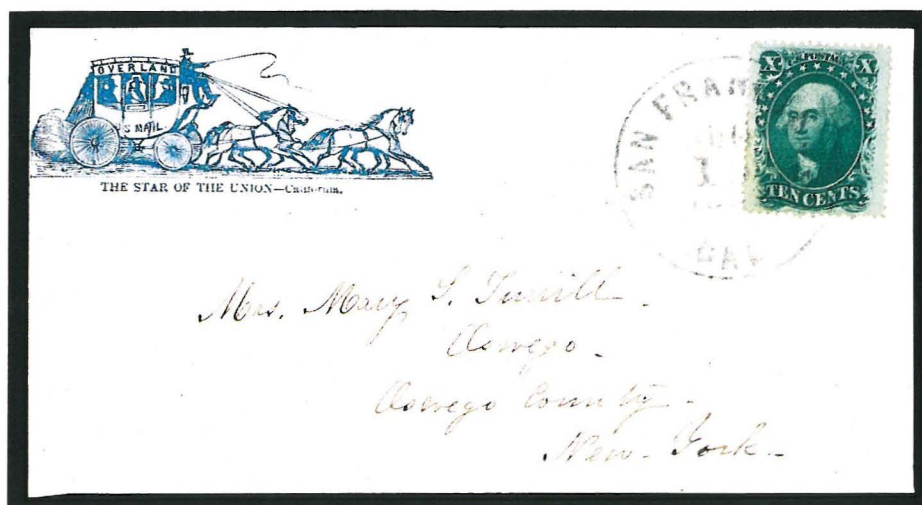 OVERLAND
U S MAIL.
THE STAR OF THE UNION—California.
SAN FRAN
CAL
X POSTAGE X
TEN CENTS
Mrs. Mary S.
Oswego.
Oswego County.
New-York.